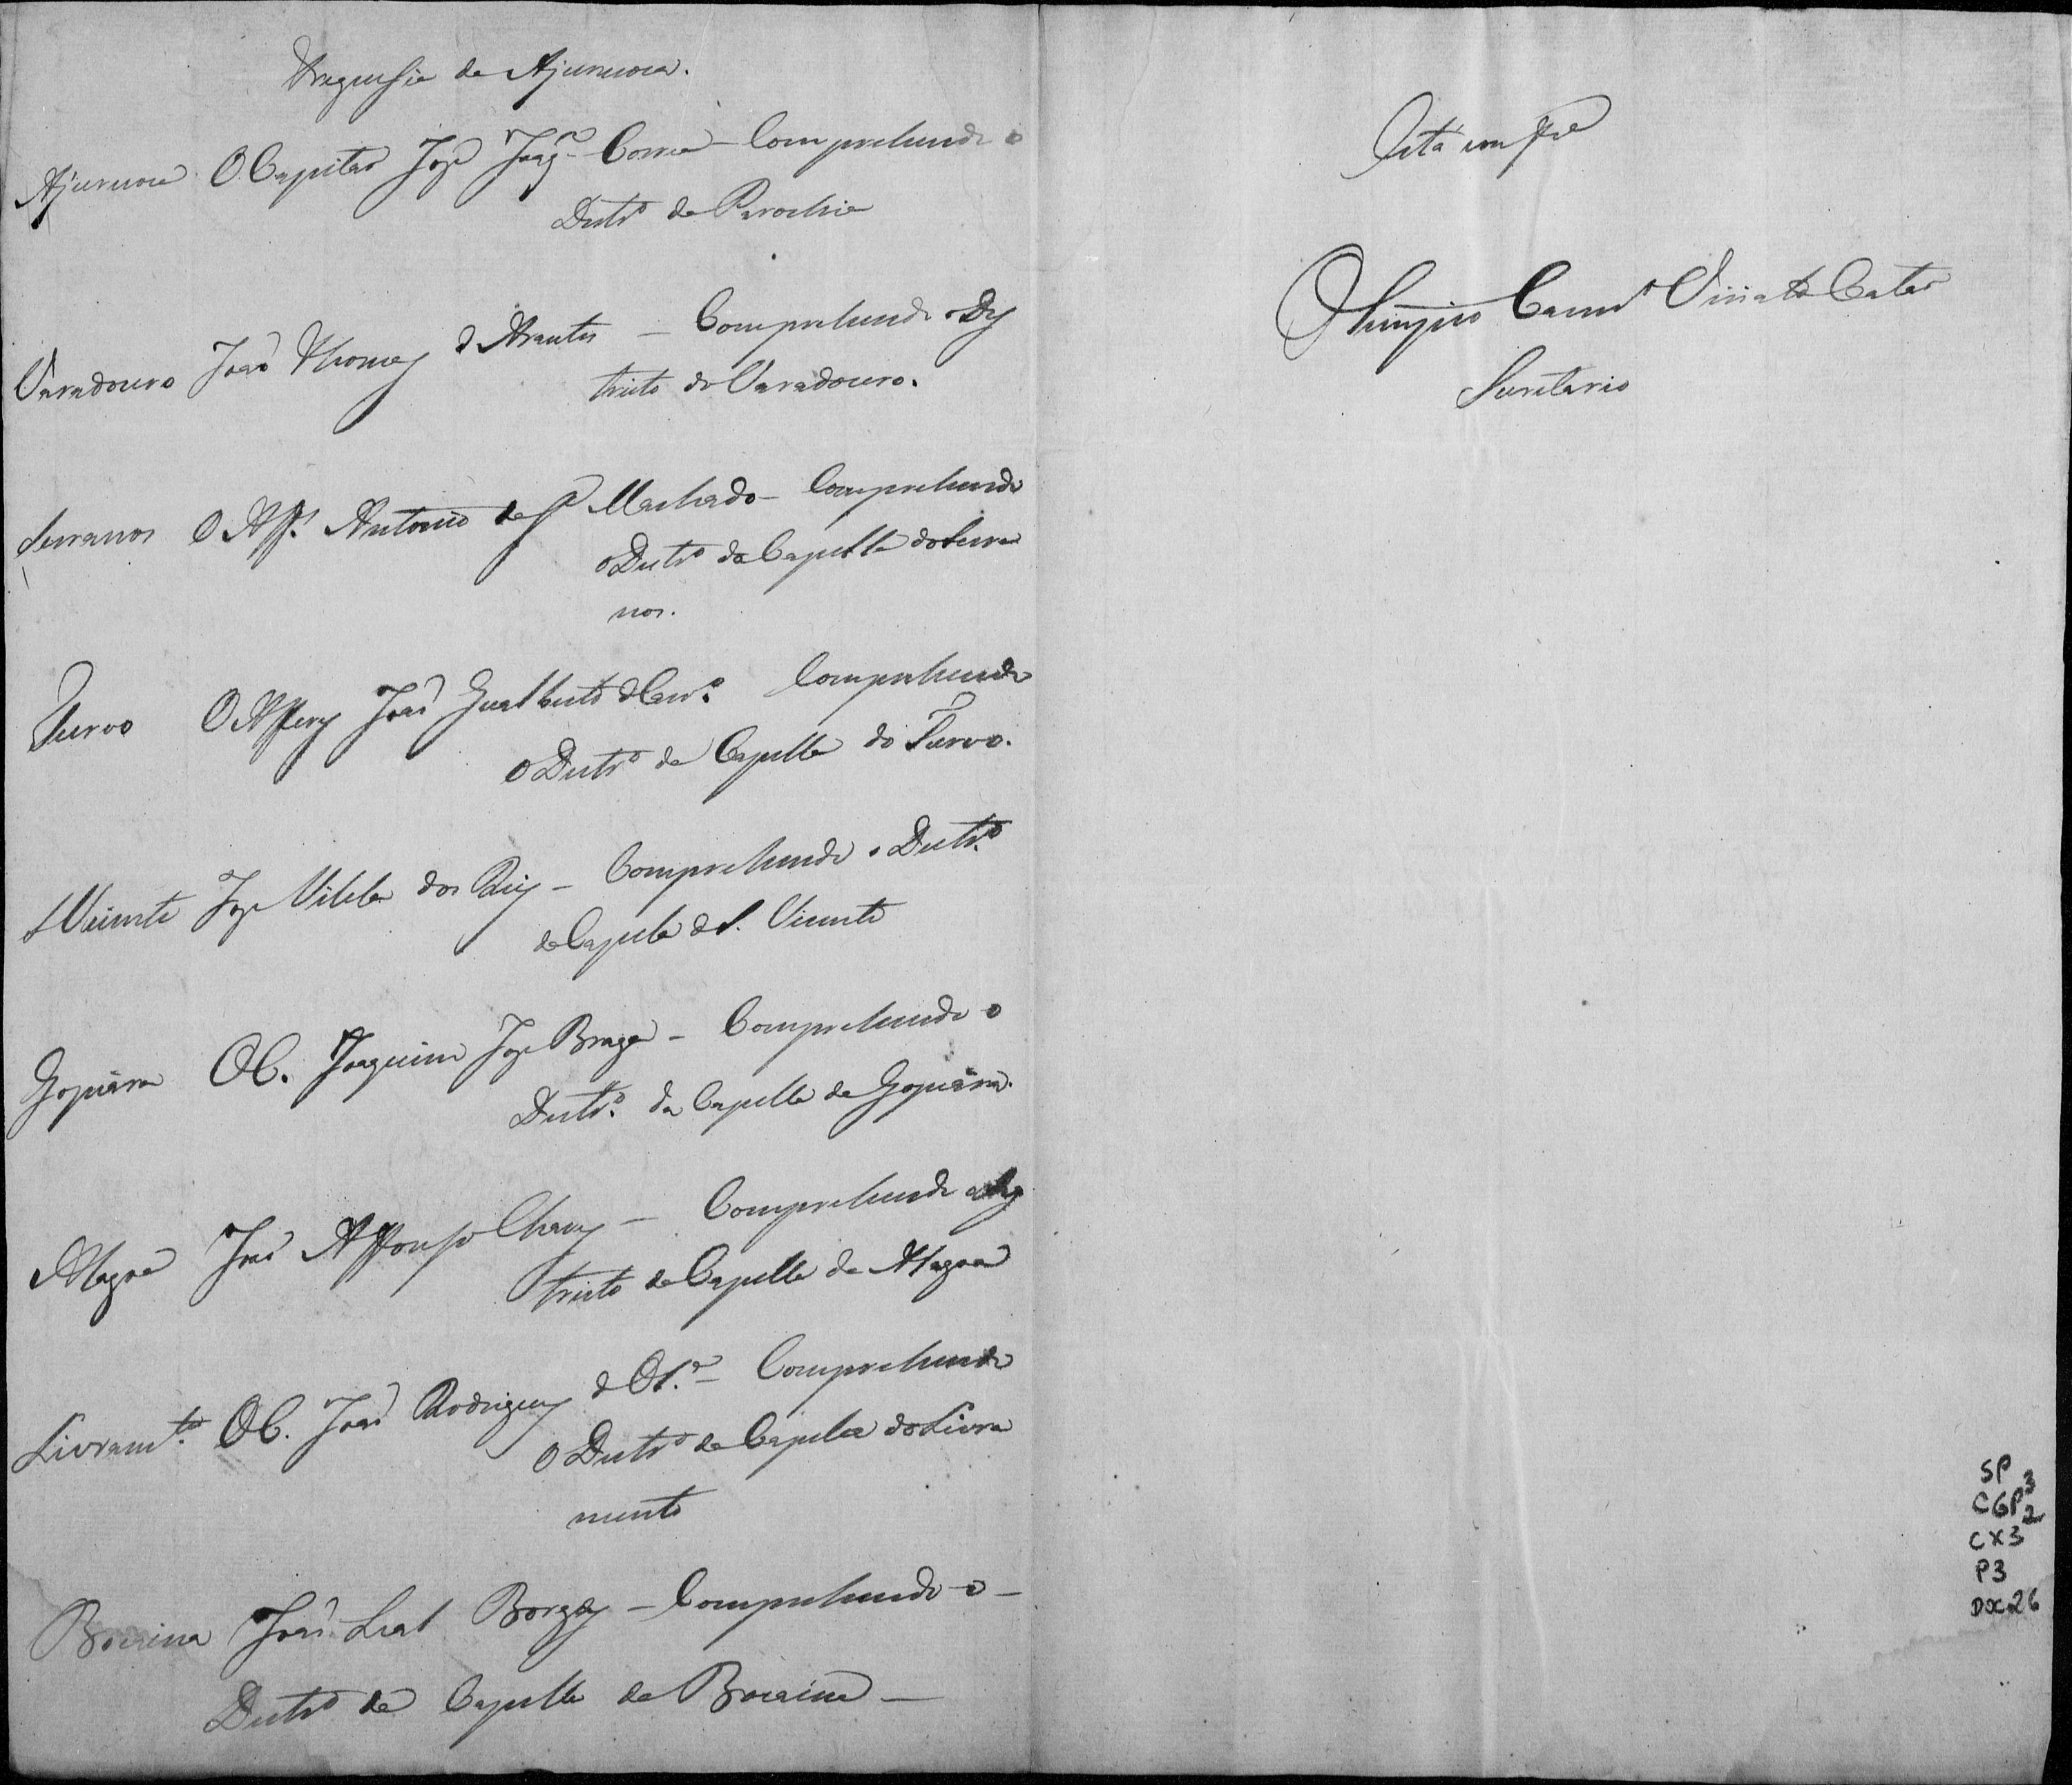 Freguesia de Ajuruoca.
Ajuruoca O Capitão José Joaqm Correa - Comprehende o
Distro da Parochia
Varadouro João Thomes d'Arantes - Comprehende o Dis
tricto do Varadouro.
Serranos O Alfs. Antonio de Sa Machado - Comprehende
o Distro da Capella dos Serra
nos.
Turvo O Alferes João Gualberto de Carvo. Comprehende
o Distro da Capella do Turvo.
S Vicente José Vilela dos Reis - Comprehende o Distro.
da Capela de S. Vicente
Gopiára O C. Joaquim José Braga - Comprehende o
Distro. da Capella da Gopiára.
Alagoa João Affonso Chaves - Comprehende o Dis
tricto da Capella da Alagoa
Livramto. O C. João Rodrigues d'Olra. - Comprehende
o Distro da Capela do Livra
mento
Bocaina João Leal Borges - Comprehende o -
Distro da Capella da Bocaina -
Está conforme
Olimpio Viriato Catão
Secretario
SP
CGP3 2
CX3
P3
DOC26